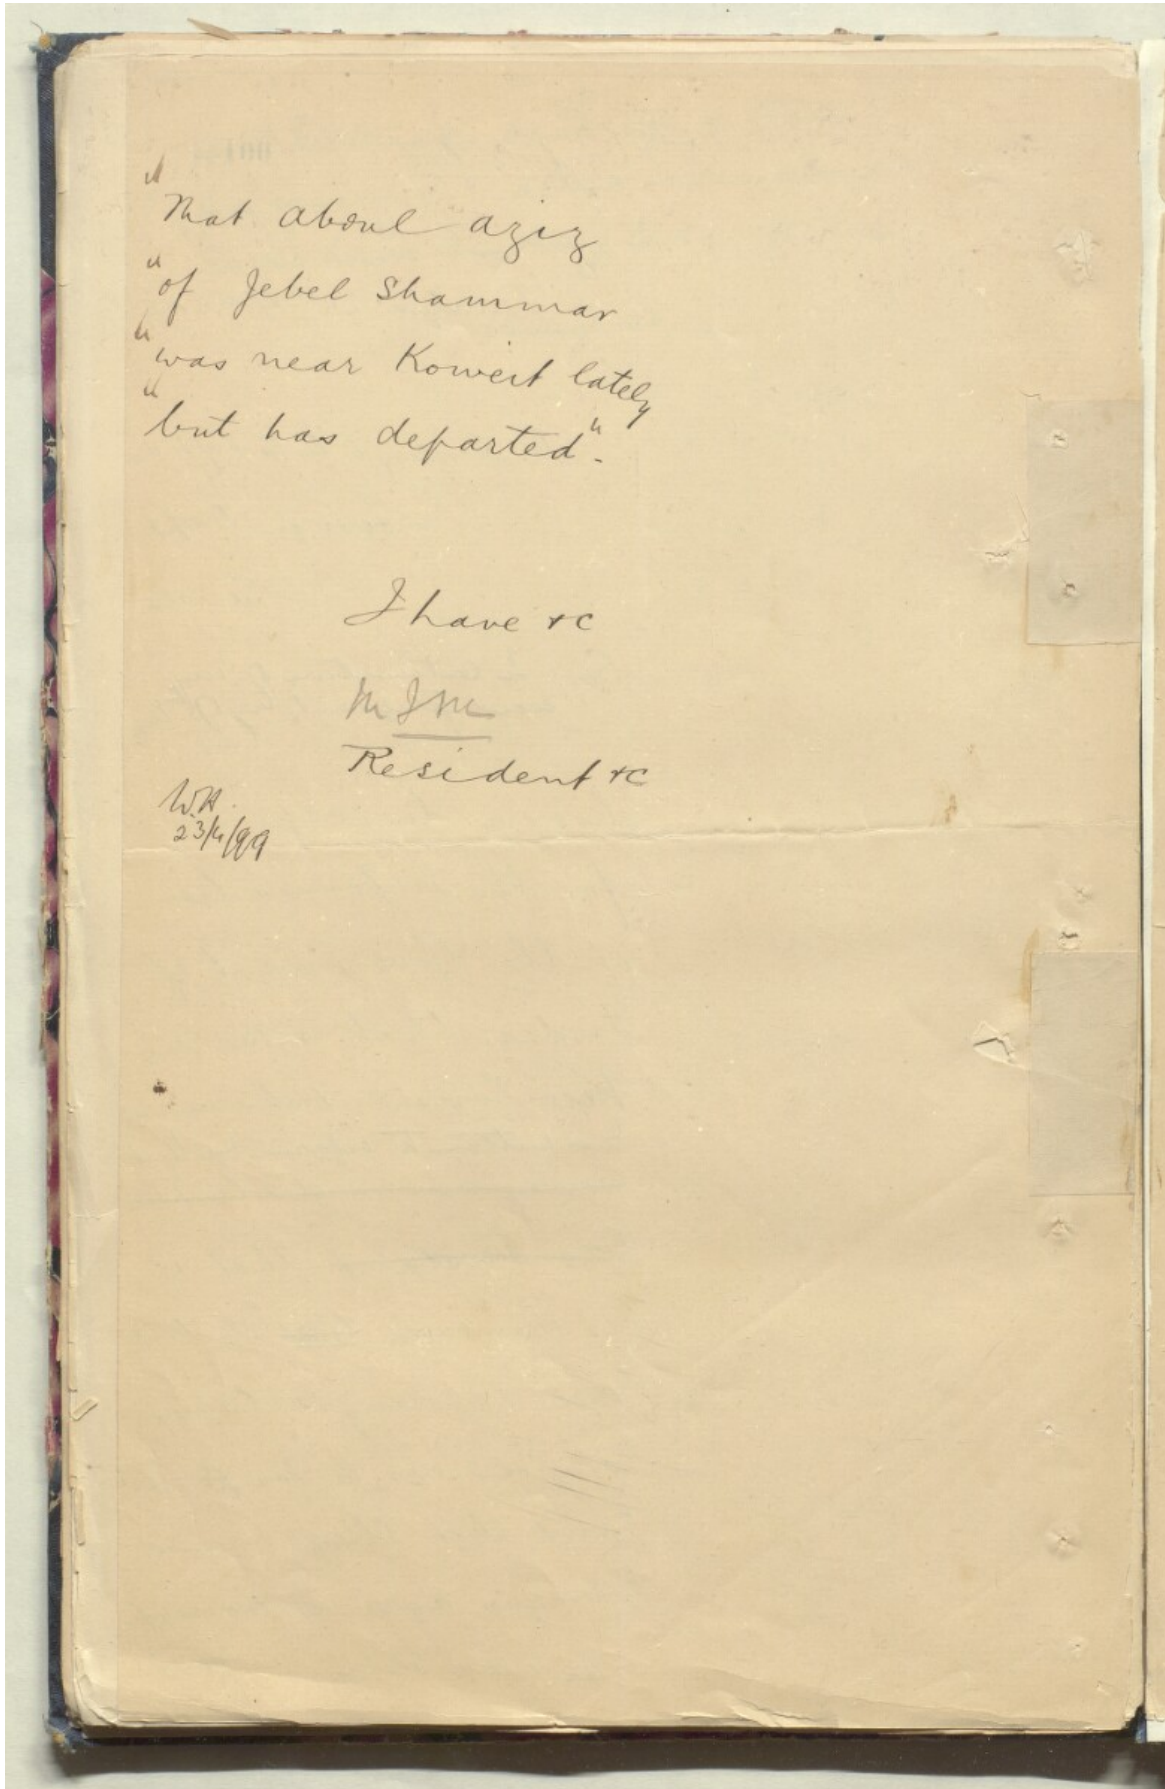 "That Abdul Aziz
"of Jebel Shammar
"was near Koweit lately
"but has departed".
I have &c
MJM
Resident &c
W.H.
23/4/99